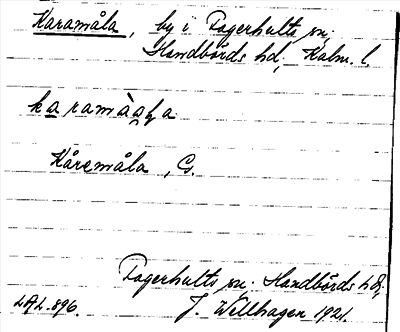 Karamåla, by i Fagerhults sn,
Handbörds hd, Kalm. l.
Kåremåla, G.
Fagerhults sn. Handbörds hd,
LAL.896. J. Wellhagen 1921.